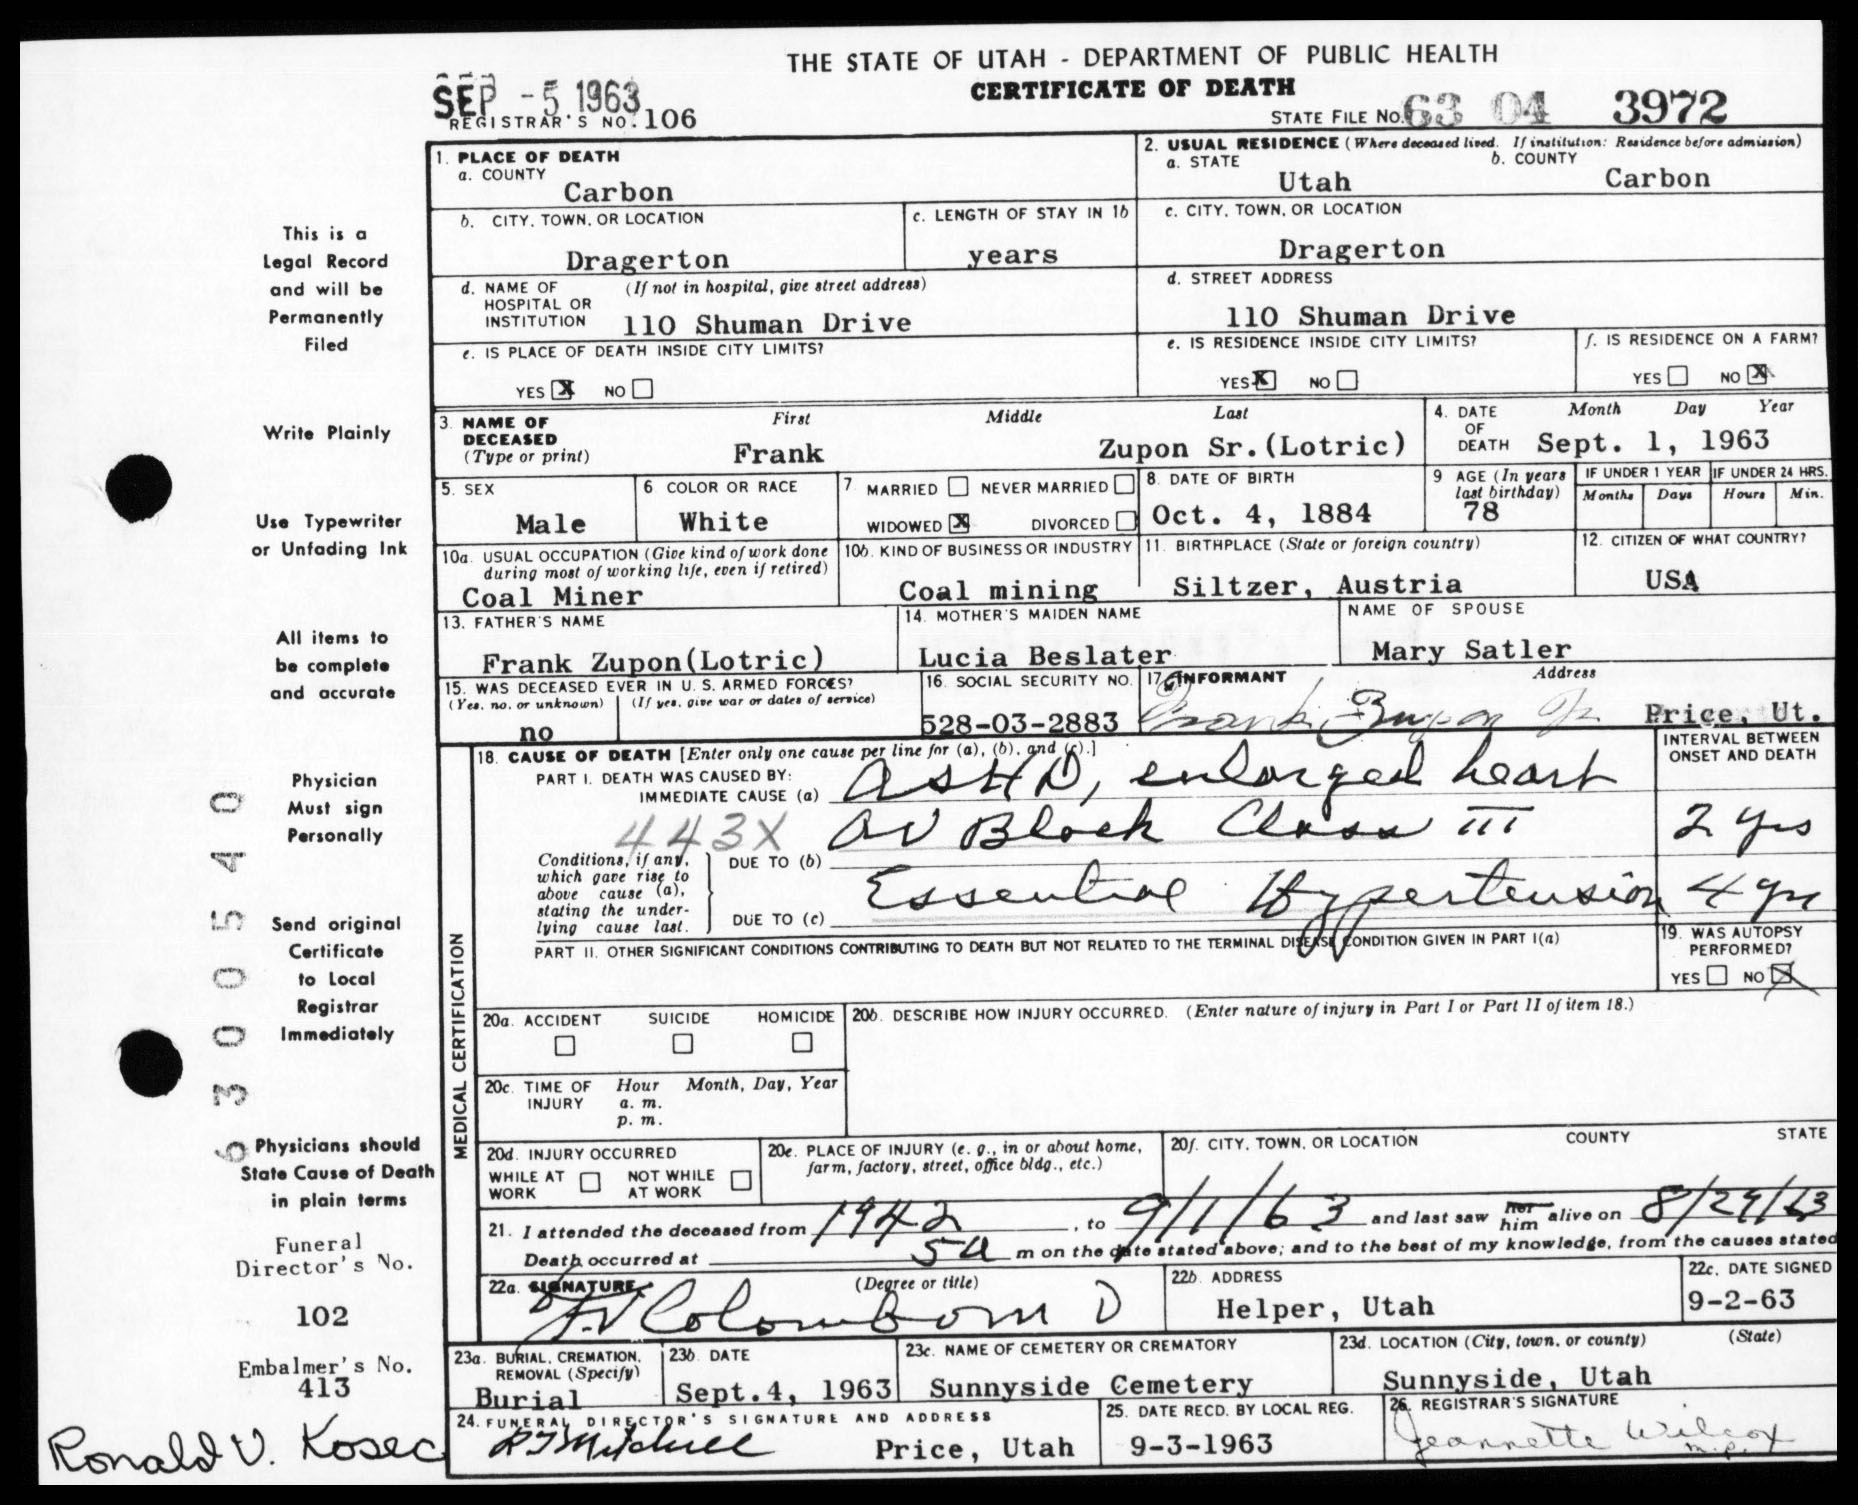 THE STATE OF UTAH - DEPARTMENT OF PUBLIC HEALTH
CERTIFICATE OF DEATH
SEP -5 1963
REGISTRAR'S NO. 106
STATE FILE NO. 63 04 3972
This is a
Legal Record
and will be
Permanently
Filed
Write Plainly
Use Typewriter
or Unfading Ink
All items to
be complete
and accurate
Physician
Must sign
Personally
Send original
Certificate
to Local
Registrar
Immediately
Physicians should
State Cause of Death
in plain terms
Funeral
Director's No.
102
Embalmer's No.
413
Ronald V. Kosec
6300540
1. PLACE OF DEATH
a. COUNTY
Carbon
2. USUAL RESIDENCE (Where deceased lived. If institution: Residence before admission)
a. STATE
Utah
b. COUNTY
Carbon
b. CITY, TOWN, OR LOCATION
Dragerton
c. LENGTH OF STAY IN 1b
years
c. CITY, TOWN, OR LOCATION
Dragerton
d. NAME OF HOSPITAL OR INSTITUTION (If not in hospital, give street address)
110 Shuman Drive
d. STREET ADDRESS
110 Shuman Drive
e. IS PLACE OF DEATH INSIDE CITY LIMITS?
YES X NO
e. IS RESIDENCE INSIDE CITY LIMITS?
YES X NO
f. IS RESIDENCE ON A FARM?
YES NO X
3. NAME OF DECEASED (Type or print)
First Middle Last
Frank Zupon Sr.(Lotric)
4. DATE OF DEATH
Month Day Year
Sept. 1, 1963
5. SEX
Male
6 COLOR OR RACE
White
7 MARRIED NEVER MARRIED
WIDOWED X DIVORCED
8. DATE OF BIRTH
Oct. 4, 1884
9 AGE (In years last birthday)
78
IF UNDER 1 YEAR
Months Days
IF UNDER 24 HRS.
Hours Min.
10a. USUAL OCCUPATION (Give kind of work done during most of working life, even if retired)
Coal Miner
10b. KIND OF BUSINESS OR INDUSTRY
Coal mining
11. BIRTHPLACE (State or foreign country)
Siltzer, Austria
12. CITIZEN OF WHAT COUNTRY?
USA
13. FATHER'S NAME
Frank Zupon(Lotric)
14. MOTHER'S MAIDEN NAME
Lucia Beslater
NAME OF SPOUSE
Mary Satler
15. WAS DECEASED EVER IN U. S. ARMED FORCES?
(Yes, no, or unknown) (If yes, give war or dates of service)
no
16. SOCIAL SECURITY NO.
528-03-2883
17. INFORMANT Address
Frank Zupon Jr Price, Ut.
18. CAUSE OF DEATH [Enter only one cause per line for (a), (b), and (c).]
INTERVAL BETWEEN ONSET AND DEATH
PART I. DEATH WAS CAUSED BY:
IMMEDIATE CAUSE (a) ASHD, enlarged heart
443X
AV Block Class III 2 yrs
DUE TO (b)
Conditions, if any, which gave rise to above cause (a), stating the underlying cause last.
Essential Hypertension 4 yrs
DUE TO (c)
PART II. OTHER SIGNIFICANT CONDITIONS CONTRIBUTING TO DEATH BUT NOT RELATED TO THE TERMINAL DISEASE CONDITION GIVEN IN PART I(a)
19. WAS AUTOPSY PERFORMED?
YES NO X
MEDICAL CERTIFICATION
20a. ACCIDENT SUICIDE HOMICIDE
20b. DESCRIBE HOW INJURY OCCURRED. (Enter nature of injury in Part I or Part II of item 18.)
20c. TIME OF INJURY Hour Month, Day, Year
a. m.
p. m.
20d. INJURY OCCURRED
WHILE AT WORK NOT WHILE AT WORK
20e. PLACE OF INJURY (e. g., in or about home, farm, factory, street, office bldg., etc.)
20f. CITY, TOWN, OR LOCATION COUNTY STATE
21. I attended the deceased from 1942, to 9/1/63 and last saw her him alive on 8/29/63
Death occurred at 5 a m on the date stated above; and to the best of my knowledge, from the causes stated
22a. SIGNATURE (Degree or title)
F.V. Colombo M D
22b. ADDRESS
Helper, Utah
22c. DATE SIGNED
9-2-63
23a. BURIAL, CREMATION, REMOVAL (Specify)
Burial
23b. DATE
Sept.4, 1963
23c. NAME OF CEMETERY OR CREMATORY
Sunnyside Cemetery
23d. LOCATION (City, town, or county) (State)
Sunnyside, Utah
24. FUNERAL DIRECTOR'S SIGNATURE AND ADDRESS
Mitchell Price, Utah
25. DATE RECD. BY LOCAL REG.
9-3-1963
26. REGISTRAR'S SIGNATURE
Jeannette Wilcox